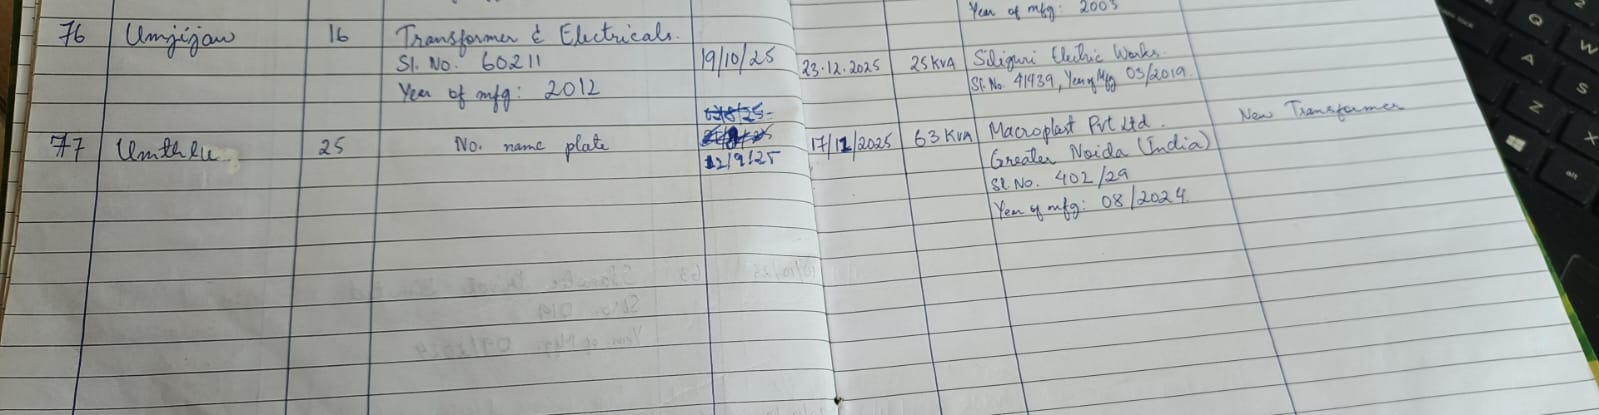 Year of mfg: 2003
76 Umjijaw 16 Transformer & Electricals. 19/10/25 23.12.2025 25KVA Siliguri Electric Works.
Sl. No. 60211 Sl. No. 41439, Year of Mfg 03/2019.
Year of mfg: 2012
New Transformer
77 Umthlu 25 No. name plate 12/9/25 17/12/2025 63 KVA Macroplast Pvt Ltd.
Greater Noida (India)
Sl. No. 402/29
Year of mfg: 08/2024.
Q
W
A
S
Z
X
alt